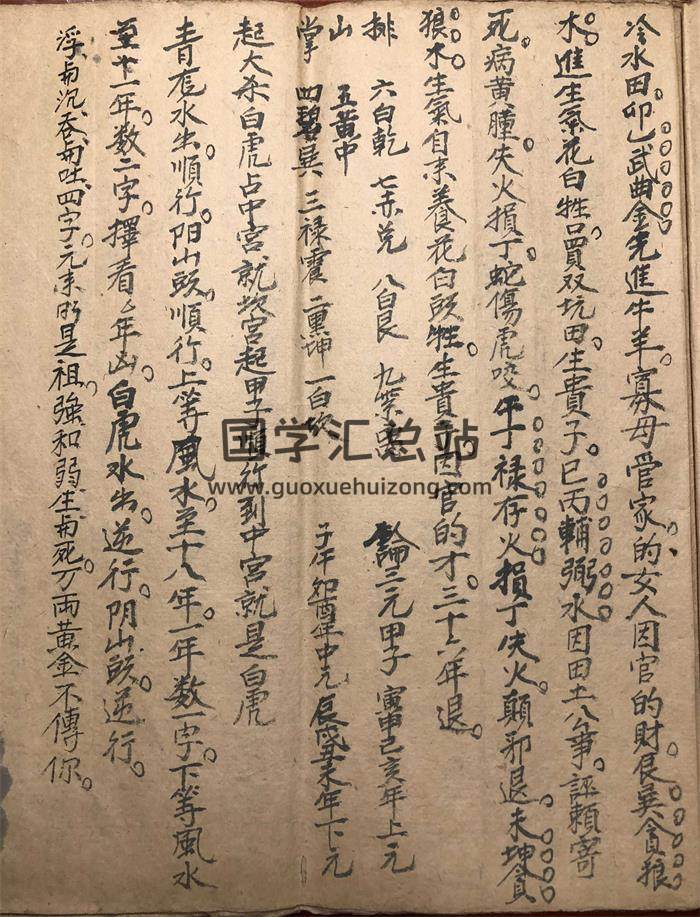 冷水田。卯乙武曲金先進牛羊。寡母管家。的女人因官的財。艮巽貪狼
木進生氣花白牲。買双坑田。生貴子。巳丙輔弼水因田土八爭。評賴寄
死。病黄腫。失火損丁蛇傷虎咬。午丁禄存火損丁失火。顛邪退。未坤貪
狼木生氣自來養花白頭牲。生貴子因官的才。三十六年退。
排 六白乾 七赤兑 八白艮 九紫 論三元甲子 寅申巳亥年上元
山 五黄中
掌 四碧巽 三禄震 二黑坤 一白坎 子午卯酉年中元 辰戌丑未年下元
起大杀白虎占中宮就坎宮起甲子順行到中宮就是白虎
青龙水出順行。阳山頭順行。上等風水至十八年一年数一字。下等風水
至十一年。数二字。擇看年凶。白虎水出逆行。阴山頭逆行。
浮与沉。吞与吐。四字。元来是祖。強和弱。生与死。万両黄金不傳你。
国学汇总站
www.guoxuehuizong.com